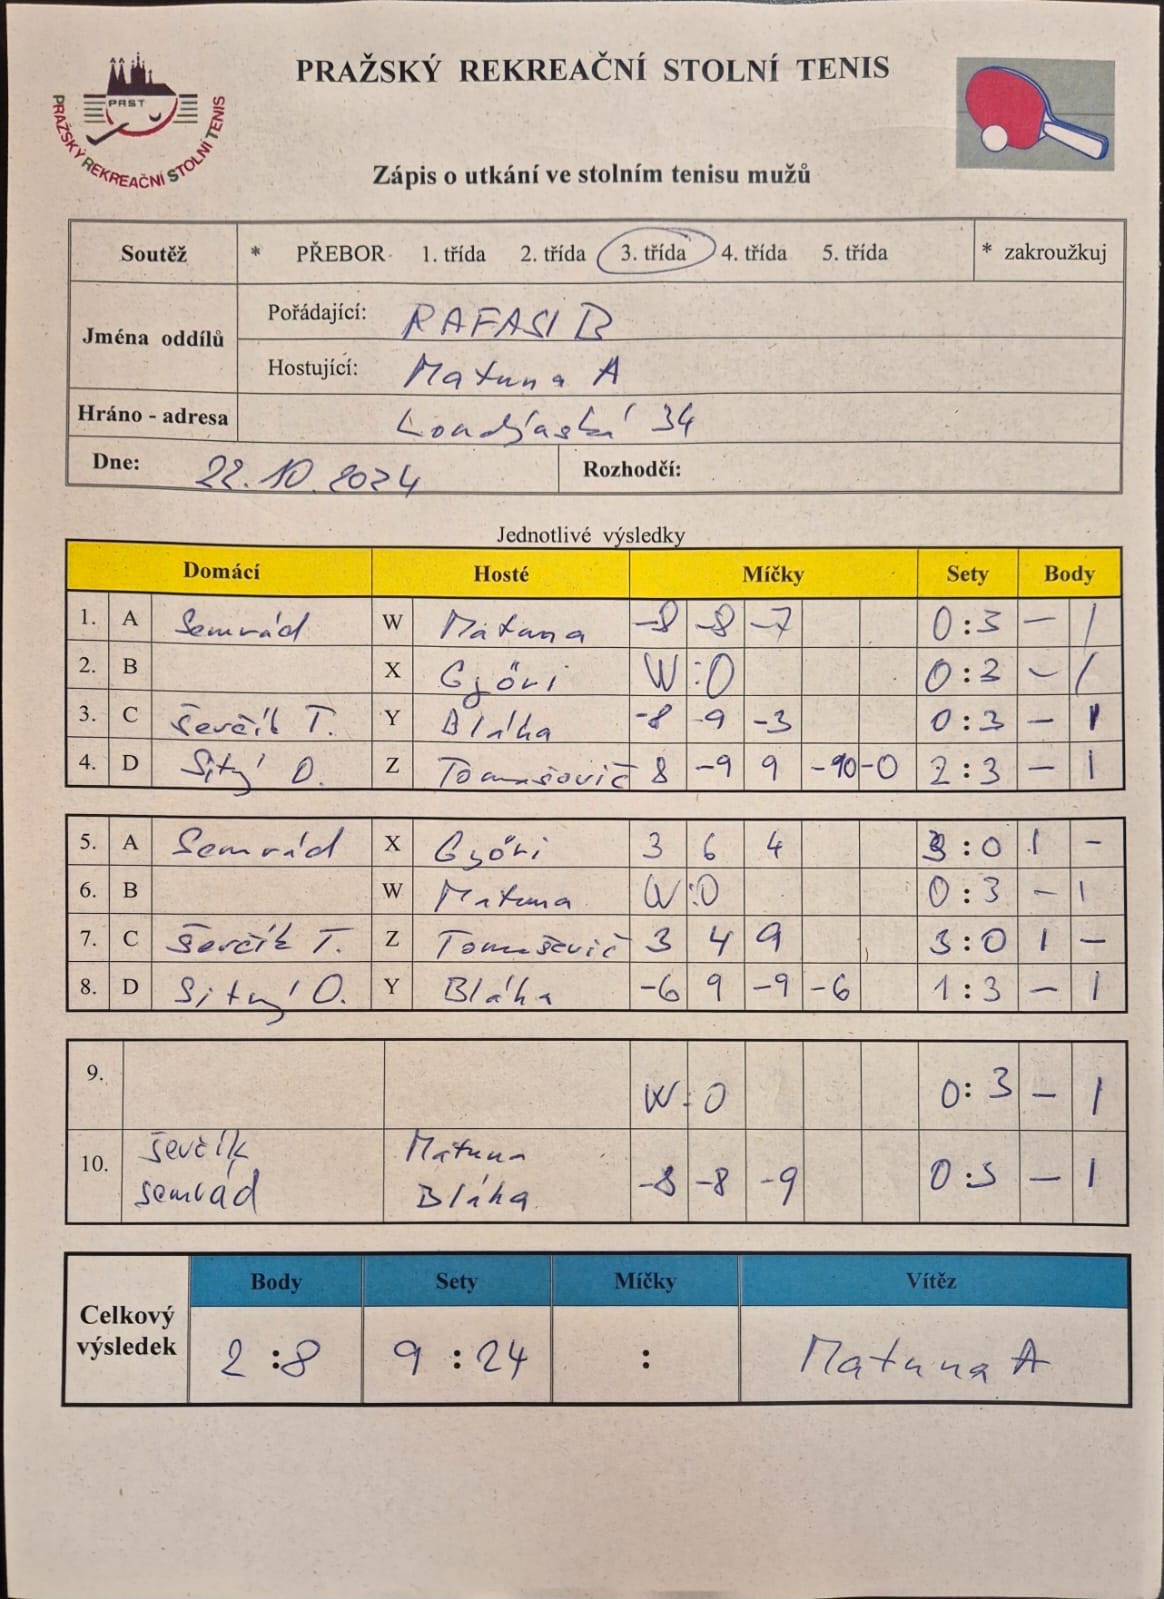 PRAŽSKÝ REKREAČNÍ STOLNÍ TENIS
PRST
PRAŽSKÝ REKREAČNÍ STOLNÍ TENIS
Zápis o utkání ve stolním tenisu mužů
Soutěž * PŘEBOR 1. třída 2. třída 3. třída 4. třída 5. třída * zakroužkuj
Jména oddílů
Pořádající: RAFASI B
Hostující: Matuna A
Hráno - adresa 34
Dne: 22.10.2024 Rozhodčí:
Jednotlivé výsledky
Domácí Hosté Míčky Sety Body
1. A Semrád W Matuna -8 -8 -7 0:3 - 1
2. B X Győri W:O 0:3 - 1
3. C Ševčík T. Y Bláha -8 -9 -3 0:3 - 1
4. D Sitný O. Z Tomašovič 8 -9 9 -10 -0 2:3 - 1
5. A Semrád X Győri 3 6 4 3:0 1 -
6. B W Matuna W:O 0:3 - 1
7. C Ševčík T. Z Tomašovič 3 4 9 3:0 1 -
8. D Sitný O. Y Bláha -6 9 -9 -6 1:3 - 1
9. W:O 0:3 - 1
10. Ševčík Matuna
Semrád Bláha -8 -8 -9 0:3 - 1
Body Sety Míčky Vítěz
Celkový výsledek 2:8 9:24 : Matuna A